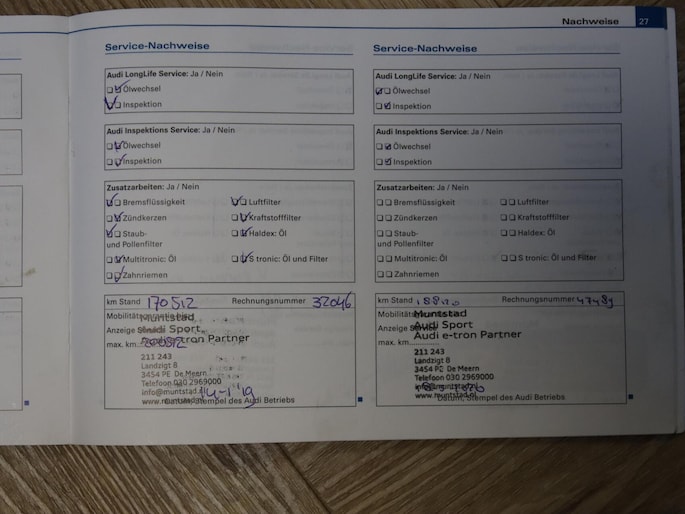 Nachweise 27
Service-Nachweise
Audi LongLife Service: Ja / Nein
Ölwechsel
Inspektion
Audi Inspektions Service: Ja / Nein
Ölwechsel
Inspektion
Zusatzarbeiten: Ja / Nein
Bremsflüssigkeit Luftfilter
Zündkerzen Kraftstofffilter
Staub- Haldex: Öl
und Pollenfilter
Multitronic: Öl S tronic: Öl und Filter
Zahnriemen
km Stand 170512 Rechnungsnummer 32046
Muntstad
Audi Sport
Anzeige
Audi e-tron Partner
max. km 200512
211 243
Landzigt 8
3454 PE De Meern
Telefoon 030 2969000
info@muntstad.nl
14-1-'19
www.muntstad.nl
Datum, Stempel des Audi Betriebs
Service-Nachweise
Audi LongLife Service: Ja / Nein
Ölwechsel
Inspektion
Audi Inspektions Service: Ja / Nein
Ölwechsel
Inspektion
Zusatzarbeiten: Ja / Nein
Bremsflüssigkeit Luftfilter
Zündkerzen Kraftstofffilter
Staub- Haldex: Öl
und Pollenfilter
Multitronic: Öl S tronic: Öl und Filter
Zahnriemen
km Stand Rechnungsnummer 47489
Muntstad
Audi Sport
Anzeige
Audi e-tron Partner
max. km
211 243
Landzigt 8
3454 PE De Meern
Telefoon 030 2969000
info@muntstad.nl
www.muntstad.nl
Datum, Stempel des Audi Betriebs